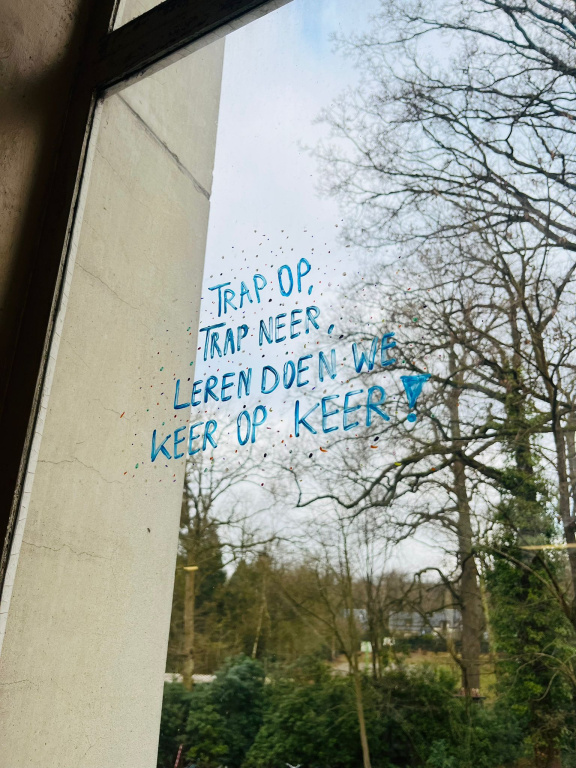 TRAP OP,
TRAP NEER,
LEREN DOEN WE
KEER OP KEER!